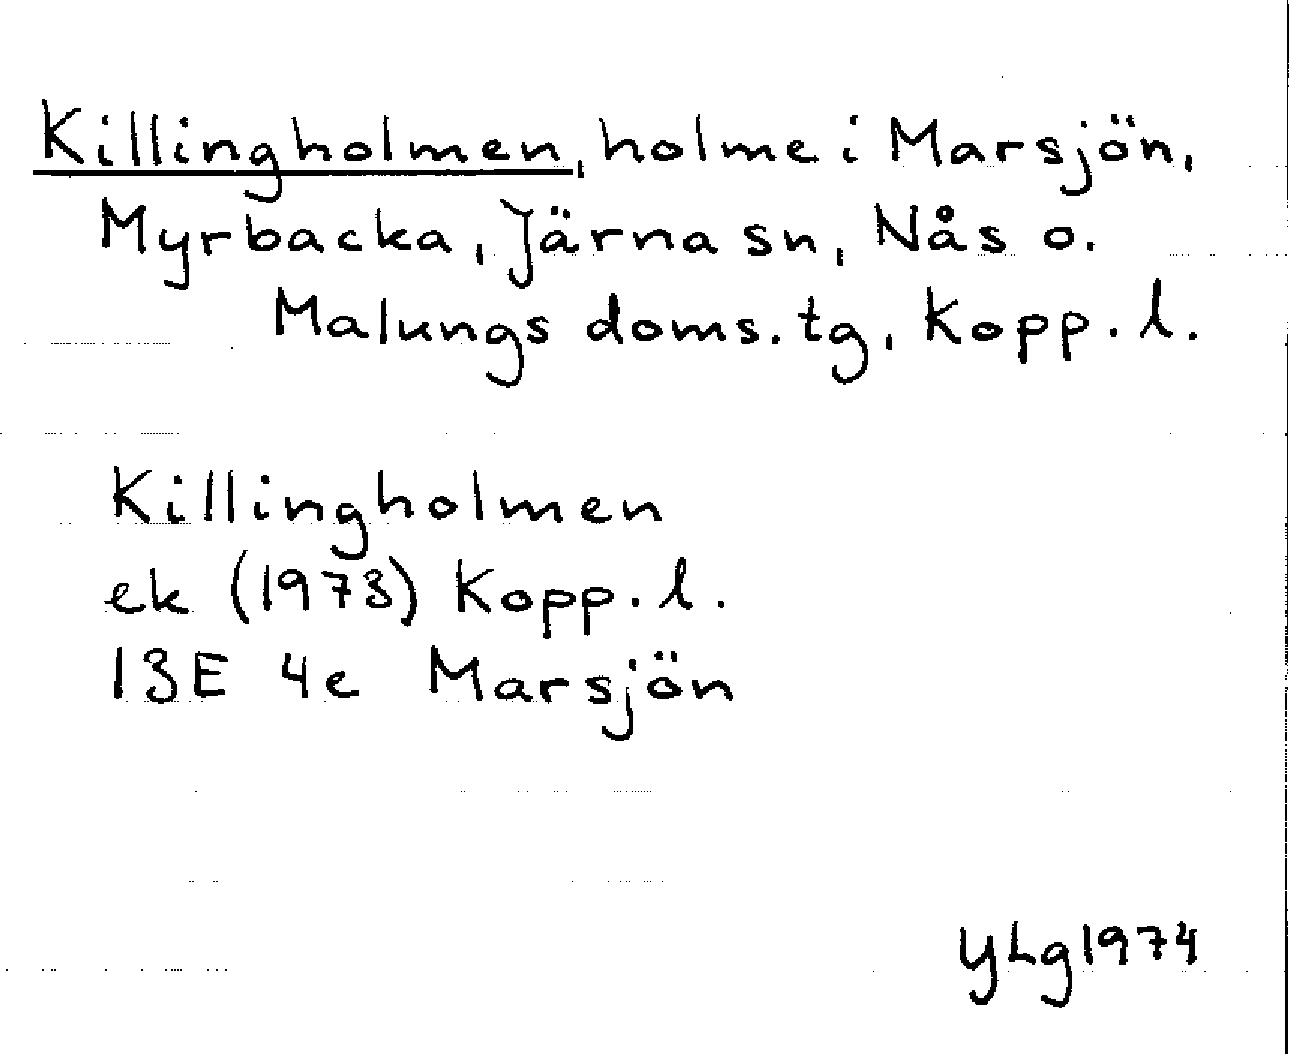 Killingholmen, holme i Marsjön,
Myrbacka, Järna sn, Nås o.
Malungs doms.tg, Kopp.l.
Killingholmen
ek (1973) Kopp.l.
13E 4e Marsjön
YLg 1974